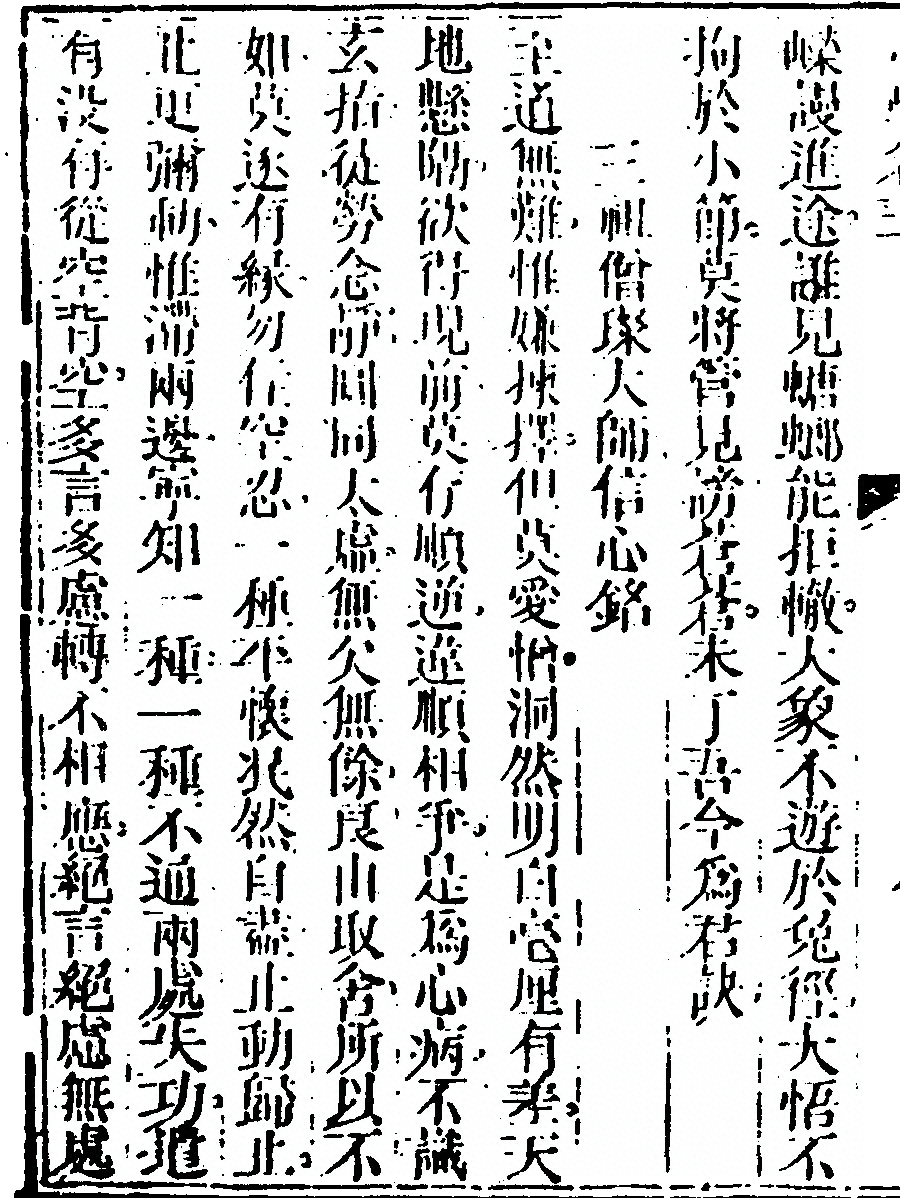 嶸謾進途誰見螗螂能拒轍大象不遊於兔徑大悟不
拘於小節莫將管見謗蒼蒼未了吾今爲君訣
三祖僧璨大師信心銘
至道無難惟嫌揀擇但莫愛憎洞然明白毫厘有差天
地懸隔欲得現前莫存順逆違順相爭是爲心病不識
玄旨徒勞念靜圓同太虛無欠無餘良由取舍所以不
如莫逐有緣勿住空忍一種平懷泯然自盡止動歸止
止更彌動惟滯兩邊寧知一種一種不通兩處失功遣
有沒有從空背空多言多慮轉不相應絕言絕慮無處